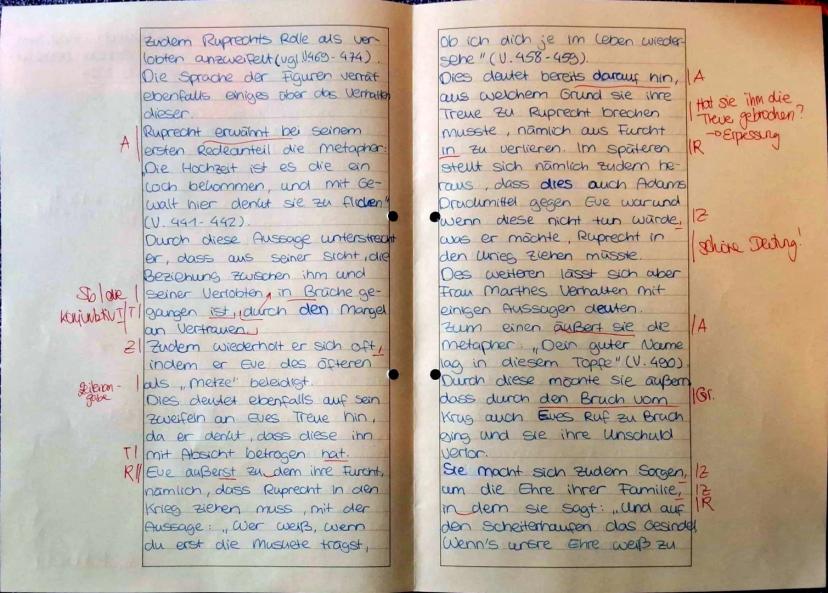 zudem Ruprechts Rolle als ver-
lobten anzweifelt (vgl. V.469-474).
Die Sprache der Figuren verrät
ebenfalls einiges über das Verhalten
dieser.
A
Ruprecht erwähnt bei seinem
ersten Redeanteil die Metapher:
"Die Hochzeit ist es die ein
Loch bekommen, und mit Ge-
walt hier denkt sie zu flicken"
(V. 441-442).
Durch diese Aussage unterstreicht
er, dass aus seiner Sicht, die
Beziehung zwischen ihm und
seiner Verlobten, in Brüche ge-
Sb | die
gangen ist, durch den Mangel
Konjunktiv I / T
an Vertrauen.
Zudem wiederholt er sich oft,
Z
indem er Eve des öfteren
als "Metze" beleidigt.
Zeilenan-
gabe
Dies deutet ebenfalls auf sein
zweifeln an Eves Treue hin,
da er denkt, dass diese ihn
mit Absicht betrogen hat.
T
Eve äußerst zu dem ihre Furcht,
R
nämlich, dass Ruprecht in den
Krieg ziehen muss, mit der
Aussage: "Wer weiß, wenn
du erst die Muskete trägst,
Ob ich dich je im Leben wieder-
sehe" (V. 458-459).
Dies deutet bereits darauf hin,
A
aus welchem Grund sie ihre
Hat sie ihm die
Treue zu Ruprecht brechen
Treue gebrochen?
musste, nämlich aus Furcht
→ Erpessung
in zu verlieren. Im späteren
R
stellt sich nämlich zudem he-
raus, dass dies auch Adams
Druckmittel gegen Eve war und
wenn diese nicht tun würde,
Z
was er möchte, Ruprecht in
schöne Deutung!
den Krieg ziehen müsste.
Des weiteren lässt sich aber
Frau Marthes Verhalten mit
einigen Aussagen deuten.
Zum einen äußert sie die
A
Metapher: "Dein guter Name
lag in diesem Topfe" (V. 490).
Durch diese möchte sie äußern
dass durch den Bruch vom
Gr.
Krug auch Eves Ruf zu Bruch
ging und sie ihre Unschuld
verlor.
Sie macht sich zudem Sorgen,
Z
um die Ehre ihrer Familie,
Z
in dem sie sagt: "Und auf
R
den Scheiterhaufen das Gesindel,
Wenn's unsre Ehre weiß zu